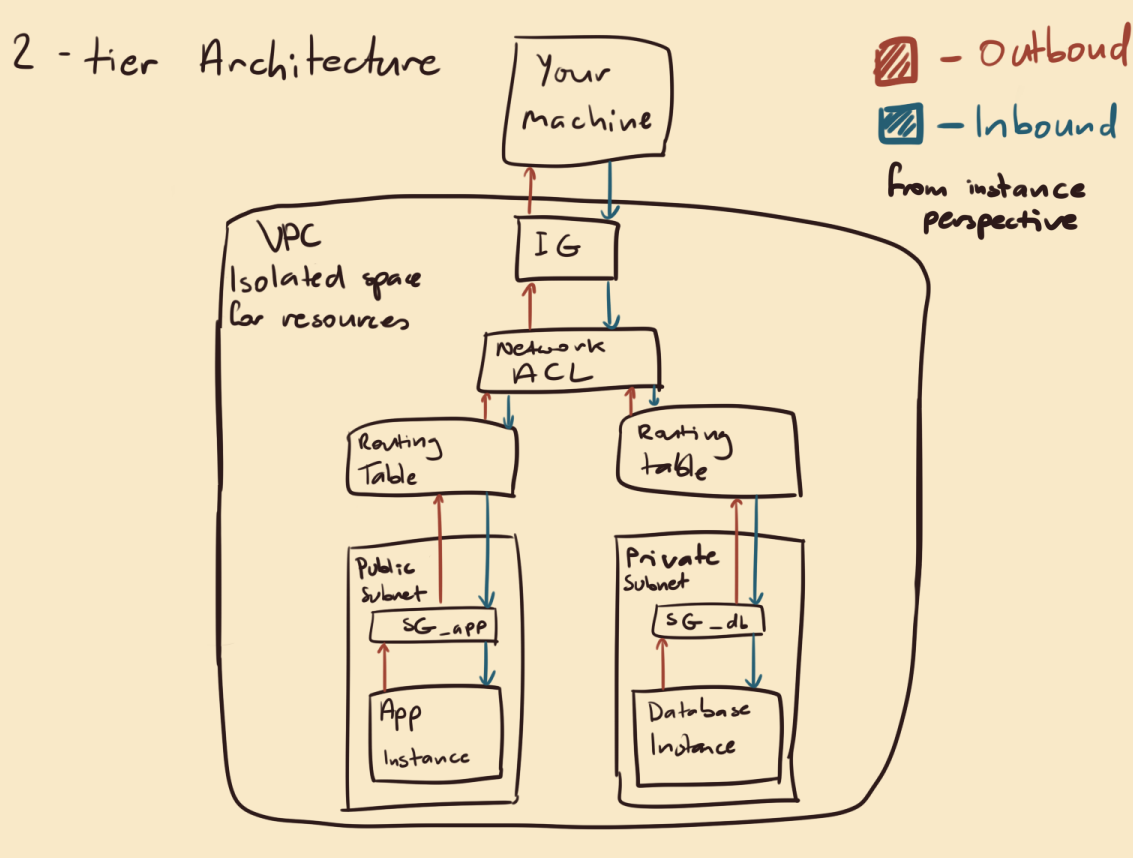 2 - tier Architecture
Your
machine
- Outbound
- Inbound
from instance
perspective
VPC
Isolated space
for resources
IG
Network
ACL
Routing
Table
Routing
table
Public
Subnet
SG_app
App
Instance
Private
Subnet
SG_db
Database
Instance